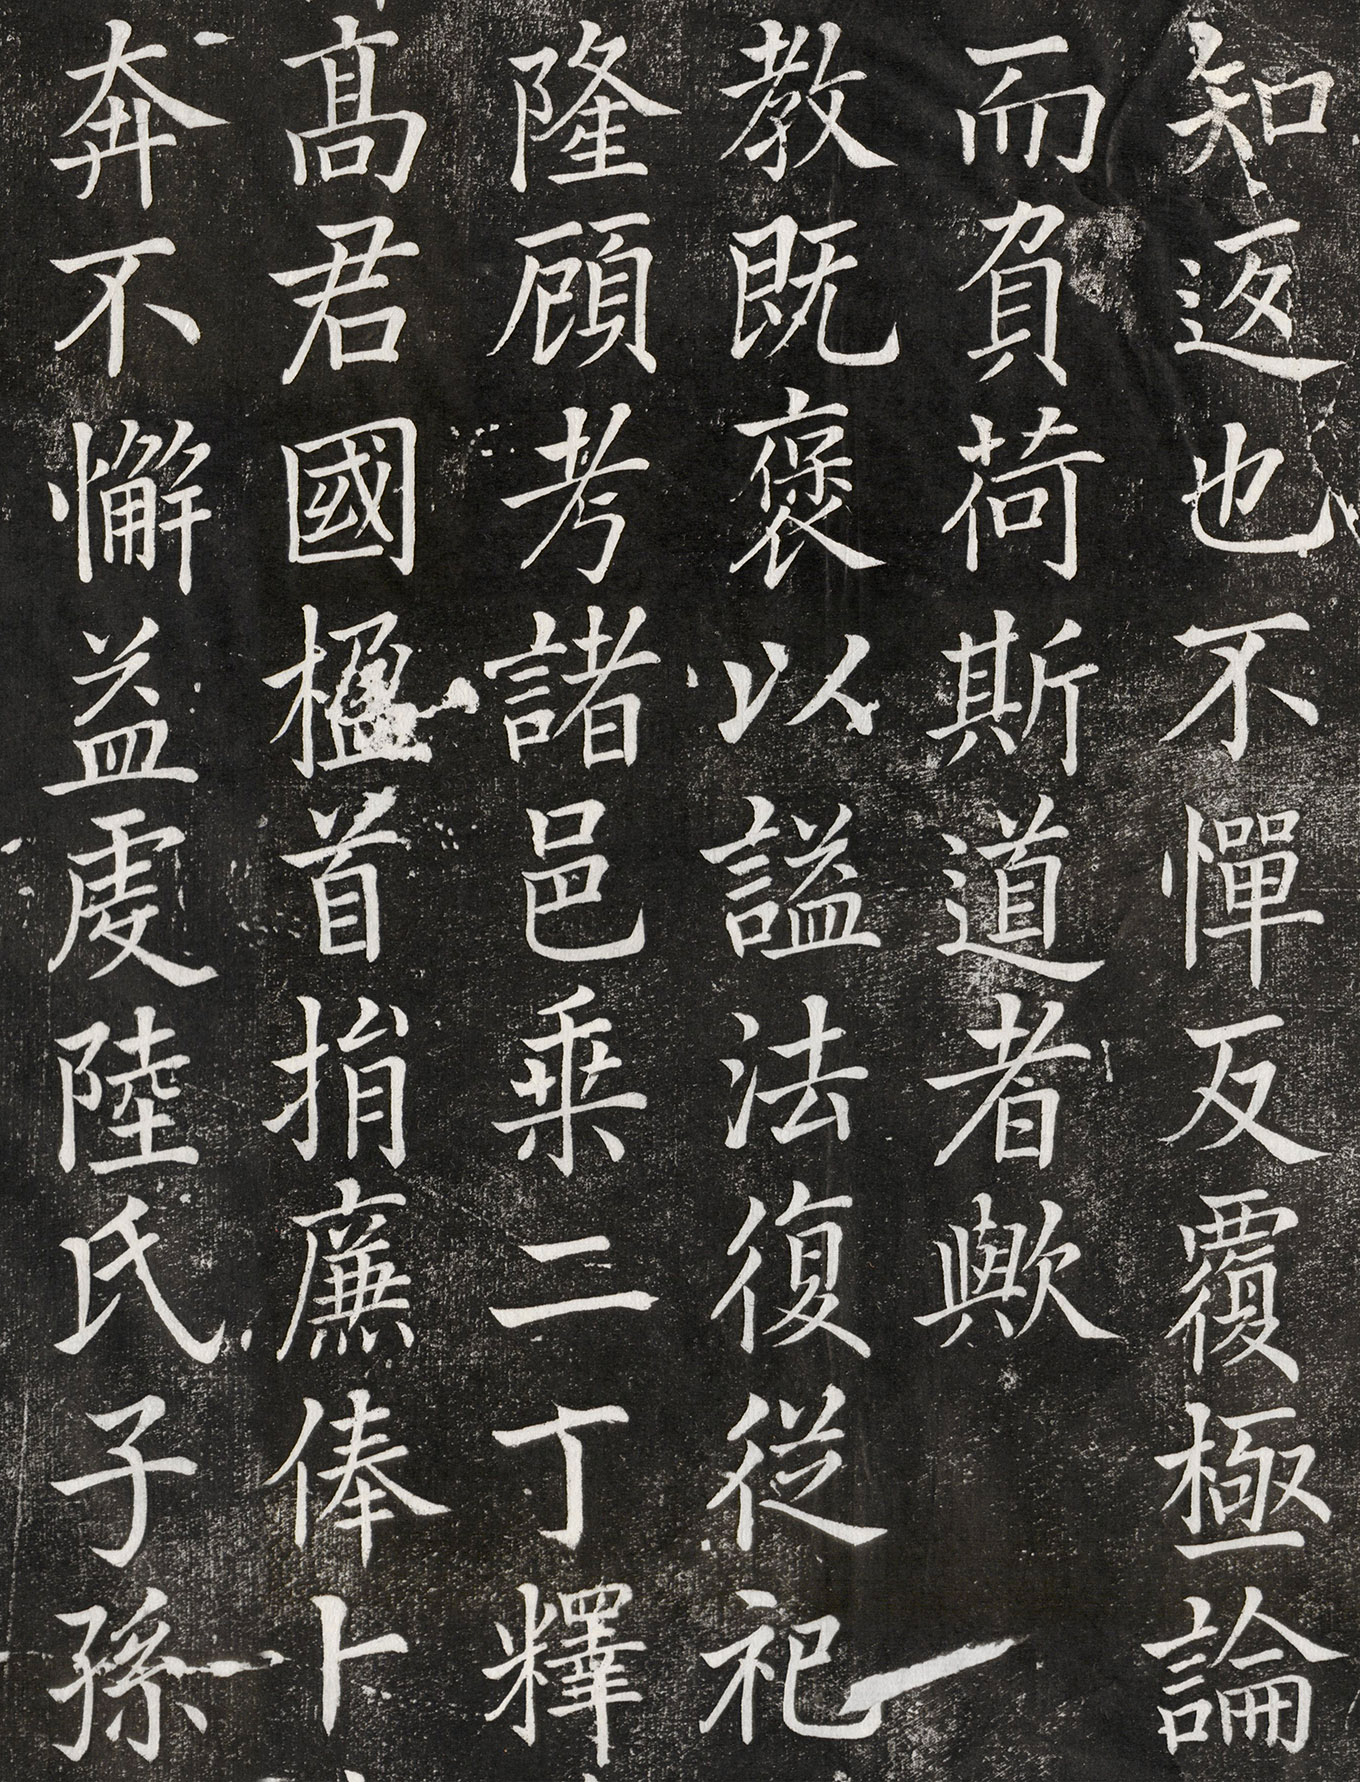 知返也不憚反覆極論
而負荷斯道者歟
教既褒以謚法復從祀
隆顧考諸邑乗二丁釋
髙君國楹首捐廉俸卜
奔不懈益虔陸氏子孫